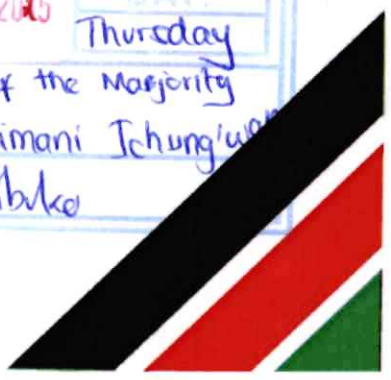 2025
Thursday
f the Marjority
imani Ichung'wa
buko